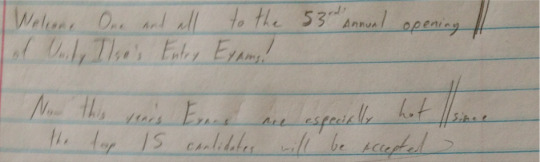 Welcome One and all to the 53rd Annual opening
of Unity Ilse's Entry Exams!
Now this year's Exams are especially hot since
the top 15 candidates will be accepted